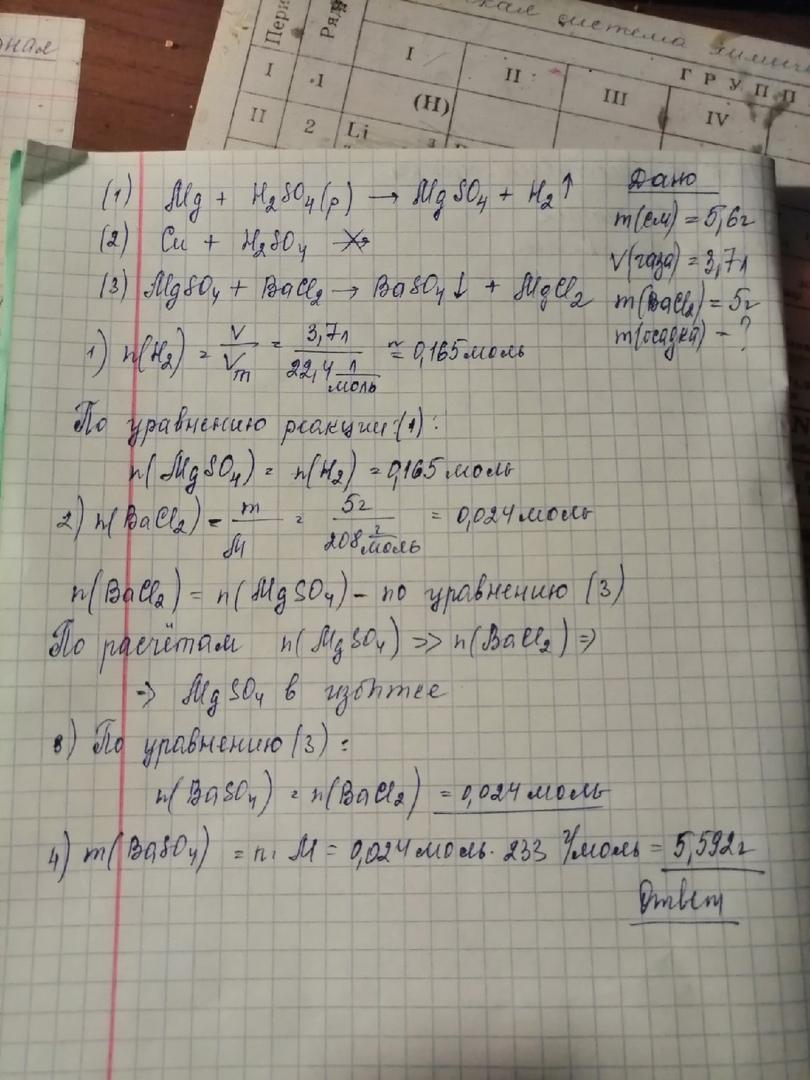 оная
ская система химич
Пери
Ряд
ГРУПП
I
II
III
IV
I
1
(H)
II
2
Li
3
(1) Mg + H₂SO₄(р) → MgSO₄ + H₂↑
(2) Cu + H₂SO₄ ↛
(3) MgSO₄ + BaCl₂ → BaSO₄↓ + MgCl₂
Дано
m(см) = 5,6г
V(газа) = 3,7л
m(BaCl₂) = 5г
m(осадка) - ?
1) n(H₂) = V/Vm = 3,7л / 22,4 л/моль ≈ 0,165 моль
По уравнению реакции (1):
n(MgSO₄) = n(H₂) = 0,165 моль
2) n(BaCl₂) = m/M = 5г / 208 г/моль = 0,024 моль
n(BaCl₂) = n(MgSO₄) - по уравнению (3)
По расчётам n(MgSO₄) >> n(BaCl₂) ⇒
⇒ MgSO₄ в избытке
3) По уравнению (3):
n(BaSO₄) = n(BaCl₂) = 0,024 моль
4) m(BaSO₄) = n · M = 0,024 моль · 233 г/моль = 5,592г
Ответ